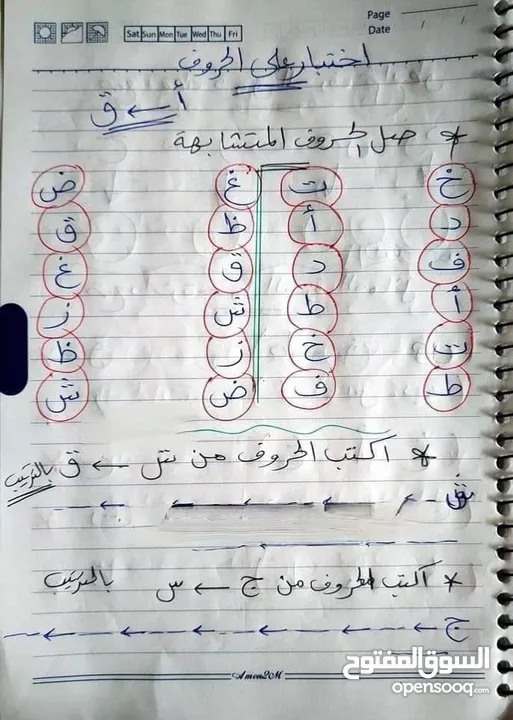 Page
Date / /
Sat Sun Mon Tue Wed Thu Fri
اختبار على الحروف
أ ← ق
* صل الحروف المتشابهة
خ ت غ ض
د أ ظ ق
ف د ق غ
أ ط ش ز
ت خ ز ظ
ط ف ض ش
* اكتب الحروف من ش ← ق بالترتيب
ش
* اكتب الحروف من ج ← س بالترتيب
ج
السوق المفتوح
opensooq.com